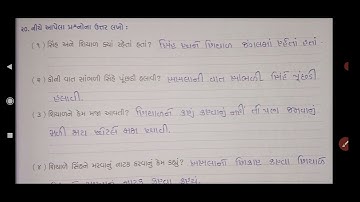 ૨૦. નીચે આપેલા પ્રશ્નોના ઉત્તર લખો :
(૧) સિંહ અને શિયાળ ક્યાં રહેતાં હતાં? સિંહ અને શિયાળ જંગલમાં રહેતાં હતાં
(૨) કોની વાત સાંભળી સિંહે પૂંછડી હલાવી? સસલાની વાત સાંભળી સિંહે પૂંછડી
હલાવી.
(૩) શિયાળને કેમ મજા આવતી? શિયાળને કશું કરવાનું નહીં તો પણ જમવાનું
મળી જાય એટલે મજા આવતી.
(૪) શિયાળે સિંહને મરવાનું નાટક કરવાનું કેમ કહ્યું? સસલાનો શિકાર કરવા શિયાળે
મરવાનું નાટક કરવા કહ્યું.